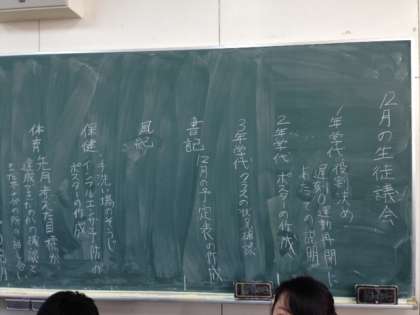 12月の生徒議会
1年学代 役割決め
遅刻0運動再開に
よせての説明
2年学代 ポスターの作成
3年学代 クラスの状況確認
書記 12月の予定表の作成
風紀
保健 手洗い場のそうじ
インフルエンザ予防の
ポスターの作成
体育 先月考えた目標が
達成できたのかの確認と